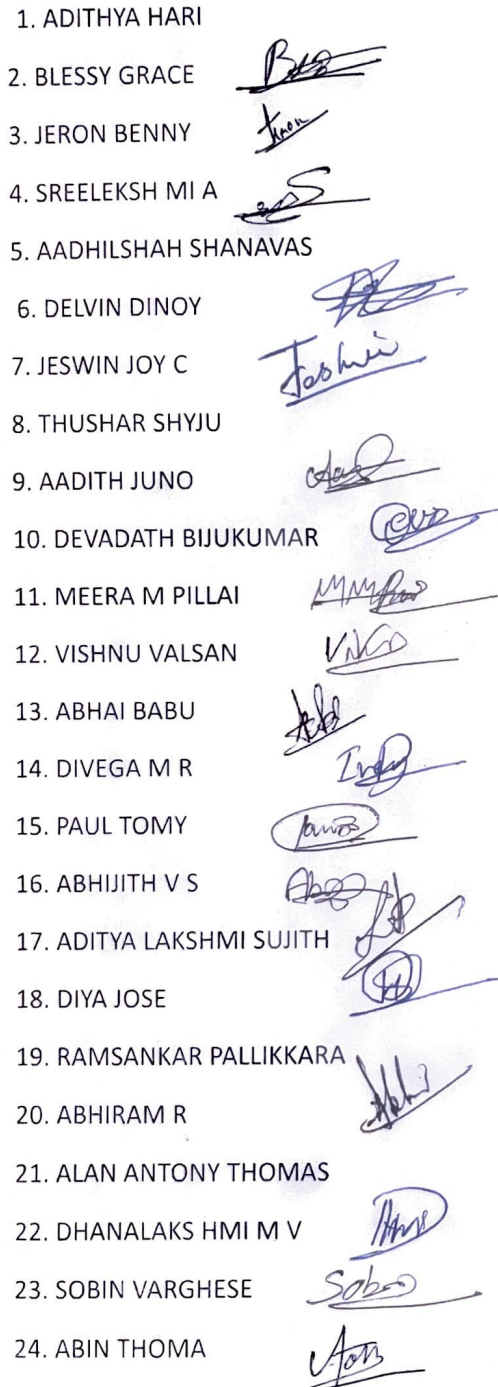 1. ADITHYA HARI
2. BLESSY GRACE
3. JERON BENNY
4. SREELEKSH MI A
5. AADHILSHAH SHANAVAS
6. DELVIN DINOY
7. JESWIN JOY C
8. THUSHAR SHYJU
9. AADITH JUNO
10. DEVADATH BIJUKUMAR
11. MEERA M PILLAI
12. VISHNU VALSAN
13. ABHAI BABU
14. DIVEGA M R
15. PAUL TOMY
16. ABHIJITH V S
17. ADITYA LAKSHMI SUJITH
18. DIYA JOSE
19. RAMSANKAR PALLIKKARA
20. ABHIRAM R
21. ALAN ANTONY THOMAS
22. DHANALAKS HMI M V
23. SOBIN VARGHESE
24. ABIN THOMA